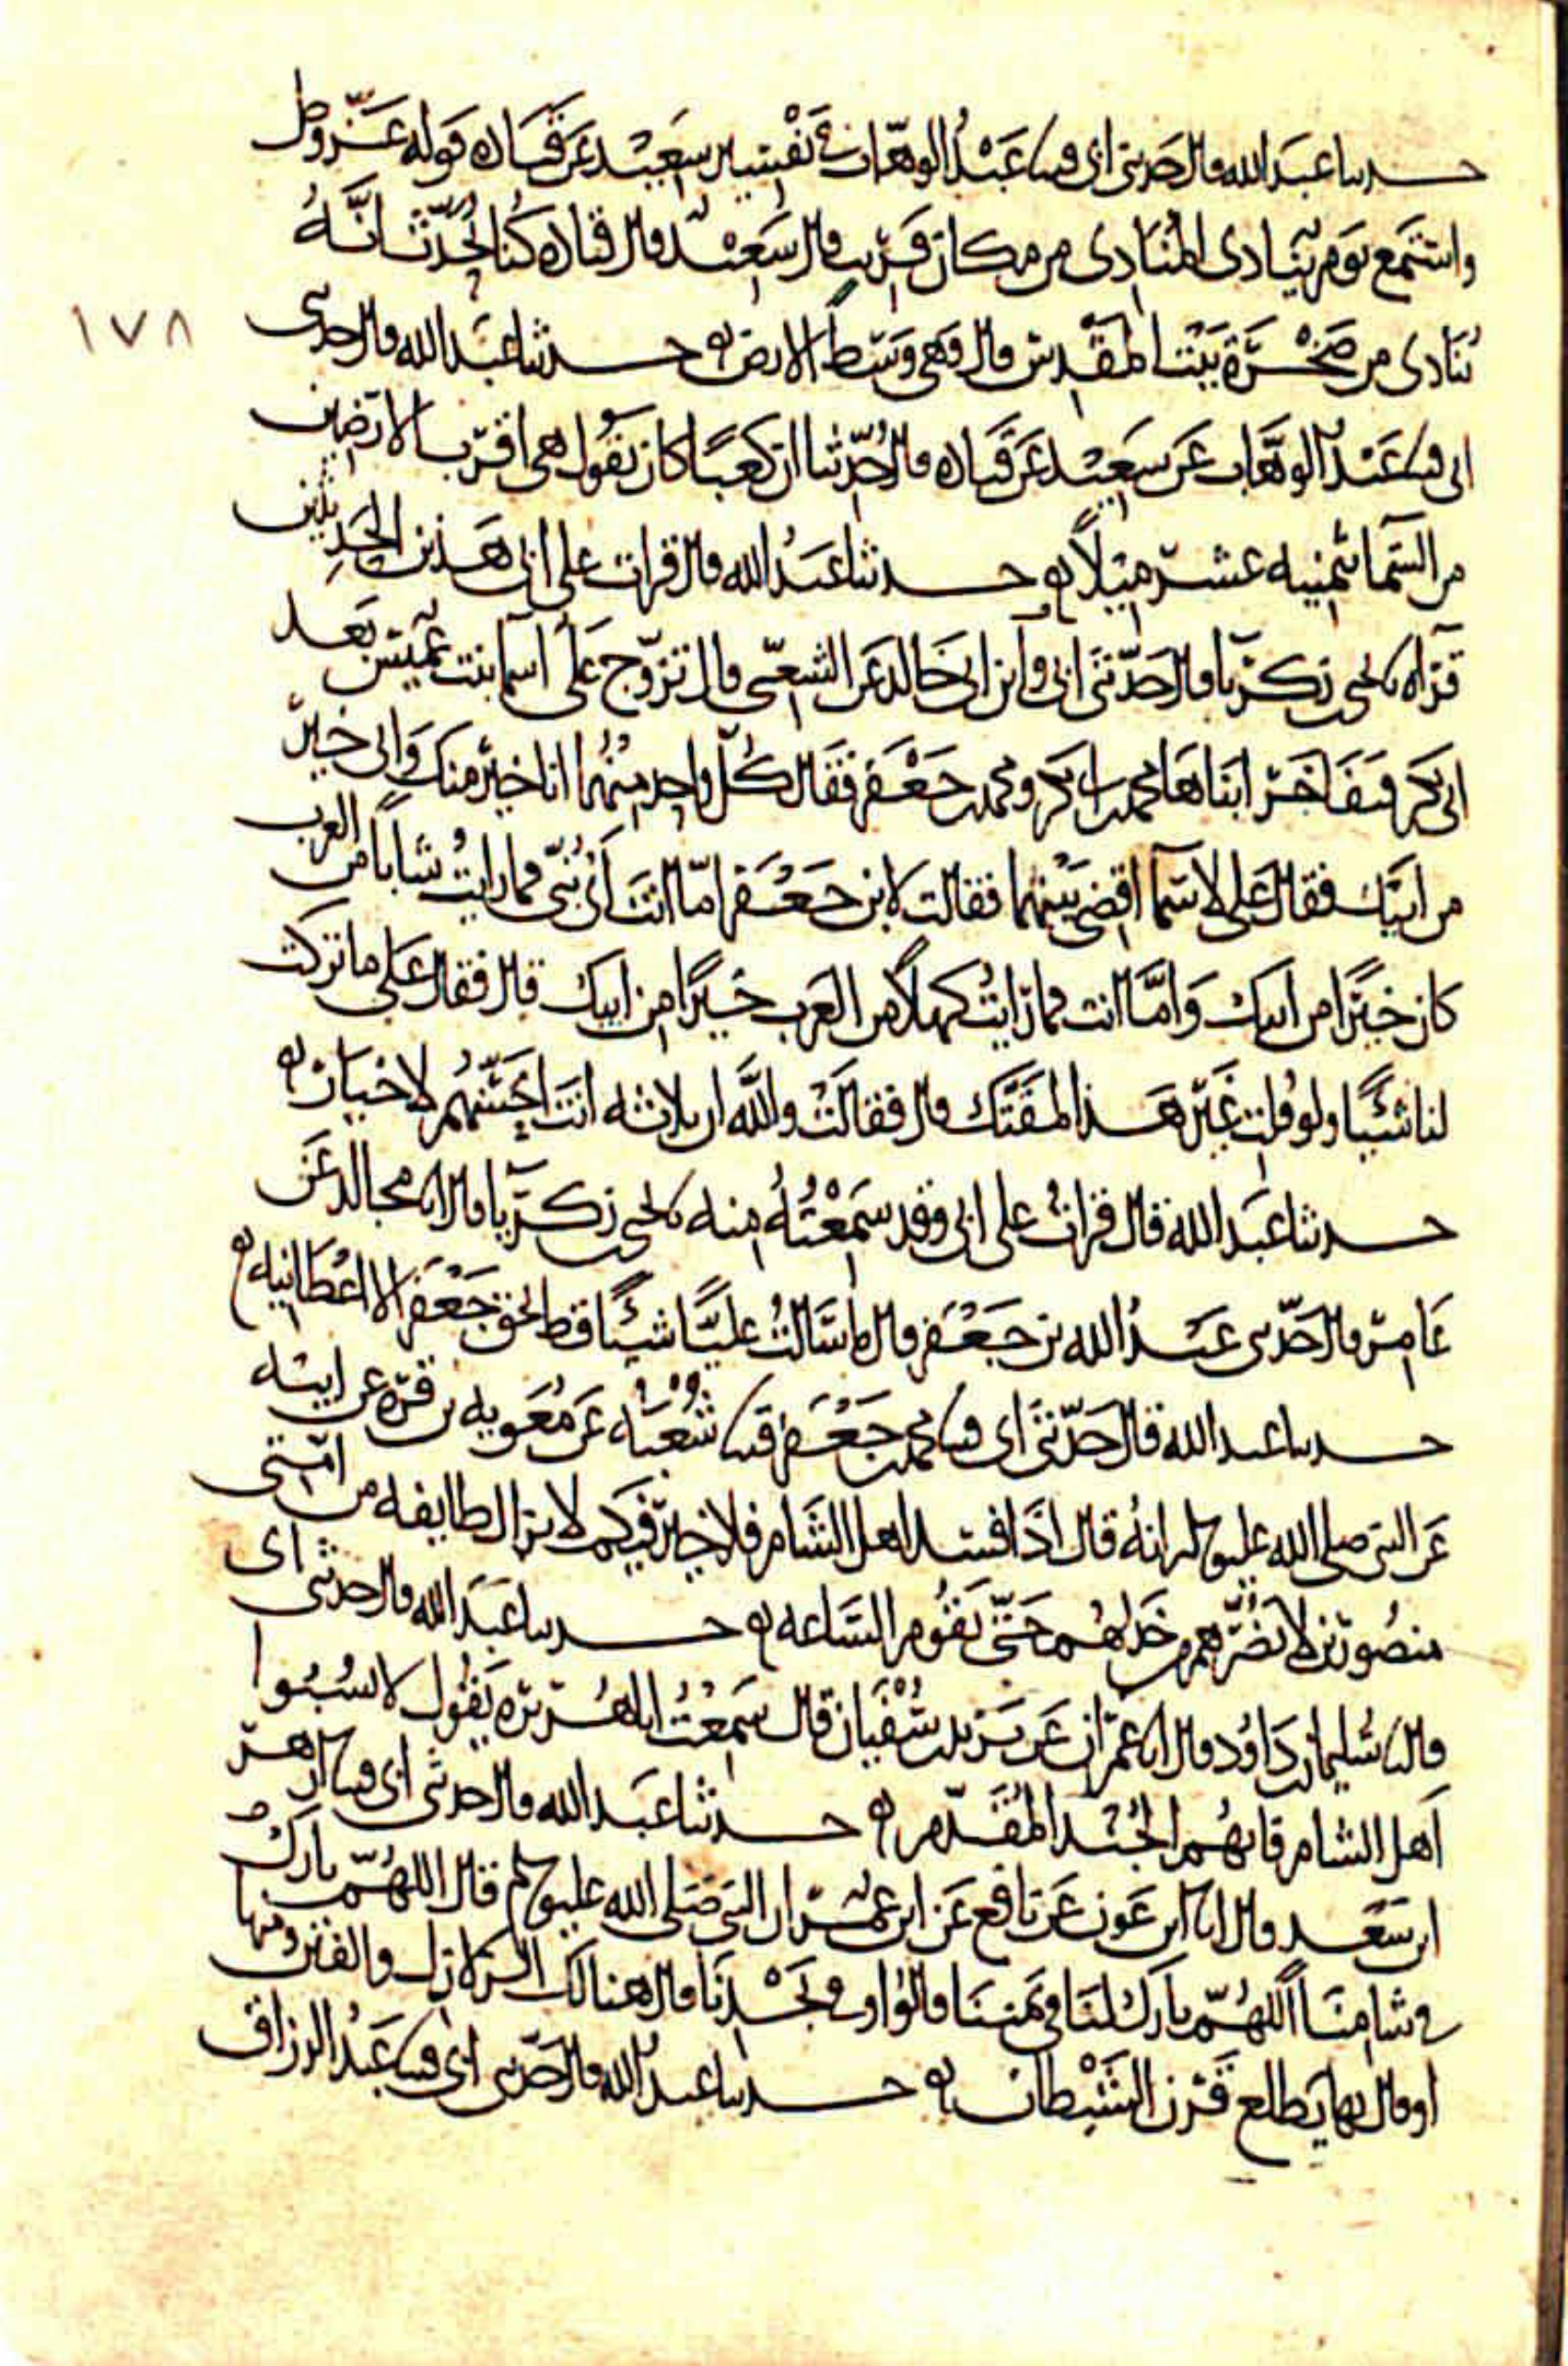 حدثنا عبد الله قال حدثني ابي قثنا عَبْدُ الوهّاب في تَفْسِير سَعِيْد عَن قَتَاده قوله عَزّ وجل
واستَمع يَوم يُنَادى المُنَادِى من مكان قَرِيب قال سَعِيْد قال قتاده كُنا نُحدّث انَّهُ
يُنَادى من صَخْرَة بَيْت المَقْدِس قال وَهى وَسَط الارض حدثنا عَبْد الله قال حدثني
ابى قثنا عَبْد الوهَّاب عَن سَعِيْد عَن قَتاده قال حُدّثنا ان كَعْبًا كان يَقول هى اقرب الارَضين
من السّمَا بثمنيه عشر مِيْلاً حدثنا عَبْد الله قال قرات على ابى هَذين الحَدِيثين
قَرَاه يحيى بن زكريا قال حَدّثنى ابى وابن ابى خَالد عَن الشعبى قال تزوّج عَلى اسما بنت عُمَيس بَعد
ابى بَكر فتَفَاخَر ابنَاهَا محمد بن ابى بكر ومحمد بن جَعْفر فقَال كُلّ واحِدٍ مِنْهُما انا خير منك وَابى خيرٌ
من ابيك فقال عَلى لاسمَا اقضى بَيْنهما فقالت لابن جَعْفر امّا انتَ اىْ بُنىّ فما رايتُ شاباً من العرب
كان خيرًا من ابيك وَامّا انت فما رَايتُ كهلاً من العَرب خيرًا من ابيك قال فقال عَلى ما تركت
لنا شيًا ولو قلت غَيْر هَذا لمقَتّك قال فقالَتْ والله ان ثلاثه انتَ اخسّهُم لاخيار
حدثنا عَبْد الله قال قراتُ على ابى وقد سَمعْتُهُ منه يحيى بن زكريا قال انا مجالد عَن
عَامِر قال حَدّثنى عَبْدُ الله بن جَعْفر قال ما سَالتُ عليًّا شيًا قط بحق جَعْفر الا اعْطَانيه
حدثنا عبد الله قال حَدّثنى ابى قثنا محمد بن جَعْفَر قثنا شُعْبَه عَن مُعَويه بن قرّه عن ابيه
عَن النبى صلى الله عليه وسلم انهُ قال اذَا فسَد اهل الشَام فلا خير فيكم لا يزال طايفه من امتى
منصُورين لا يَضُرّهم من خَذلهُم حَتّى تَقُوم السَاعه حدثنا عَبْد الله قال حدثنى ابى
قال ثنا سُليمان بن دَاوُد قال انا عِمْرَان عَن يَزيد بن سُفْيَان قال سَمِعْتُ ابا هُريره يَقُول لا تسُبُوا
اَهل الشام فانهُم الجُنْد المُقَدّم حدثنا عَبْد الله قال حدثنى ابى قثنا ازهر
ابن سَعْد قال انا ابن عَون عَن نافع عَن ابن عُمر ان النبى صَلى الله عليه وسلم قال اللهُمّ بارك
فى شامِنَا اللهُمّ بارك لنَا فى يَمننَا قالُوا وفى نَجْدنَا قال هنالك الزلازل والفتن ومنها
او قال بها يَطلع قَرْن الشَيْطان حدثنا عبد الله قال حَدّثنى ابى قثنا عَبْدُ الرزاق
١٧٨